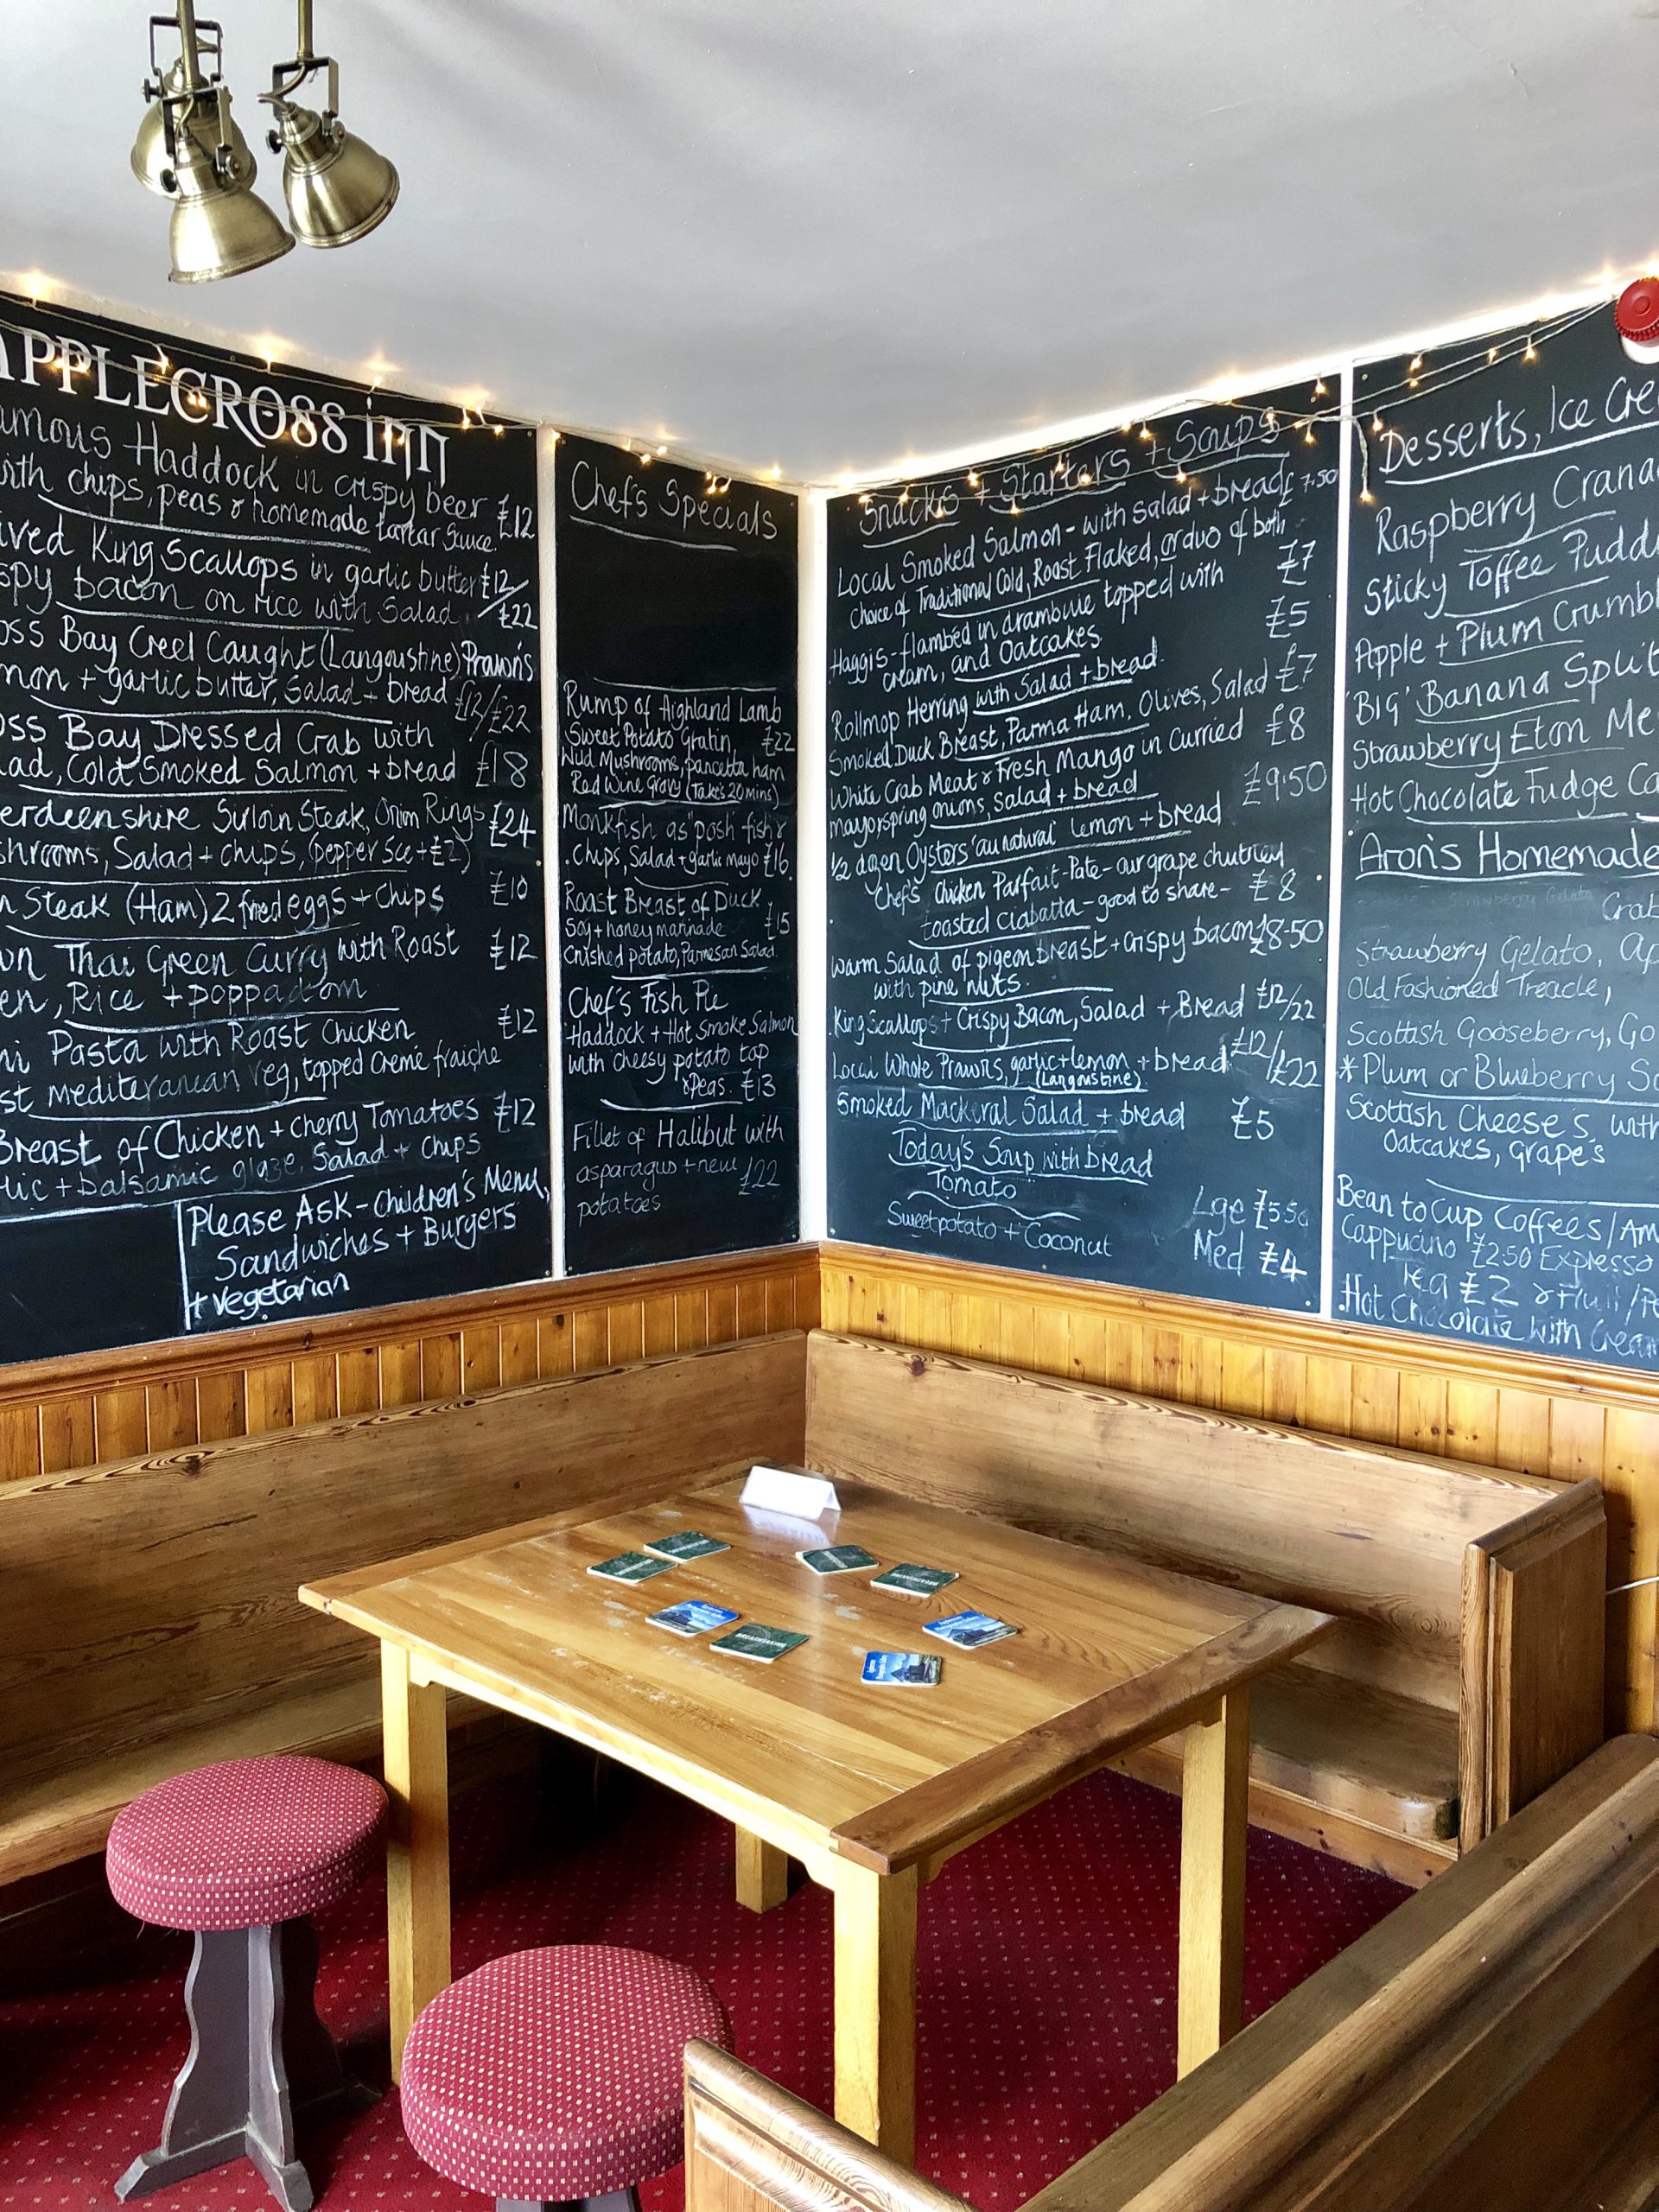 APPLECROSS INN
Haddock in crispy beer £12
with chips, peas & homemade tartar Sauce.
King Scallops in garlic butter £12/
bacon on rice with Salad £22
Bay Creel Caught (Langoustine) Prawns
+ garlic butter, Salad + bread £12/£22
Bay Dressed Crab with
Cold Smoked Salmon + bread £18
Sirloin Steak, Onion Rings £24
Salad + chips, (pepper Sce + £2)
Steak (Ham) 2 fried eggs + Chips £10
Thai Green Curry with Roast £12
Rice + poppadom
Pasta with Roast Chicken £12
mediterranean veg, topped Creme fraiche
Breast of Chicken + cherry Tomatoes £12
+ balsamic glaze, Salad + chips
Please Ask - Children's Menu,
Sandwiches + Burgers
+ vegetarian
Chef's Specials
Rump of Highland Lamb
Sweet Potato Gratin, £22
Wild Mushrooms, pancetta ham
Red Wine Gravy (Takes 20 mins)
Monkfish as "posh" fish &
Chips, Salad + garlic mayo £16
Roast Breast of Duck
Soy + honey marinade £15
Crushed potato, Parmesan Salad.
Chef's Fish Pie
Haddock + Hot Smoke Salmon
with cheesy potato top
& Peas. £13
Fillet of Halibut with
asparagus + new £22
potatoes
Snacks + Starters + Soups
Local Smoked Salmon - with Salad + bread £7.50
Choice of Traditional Cold, Roast Flaked, or duo of both
Haggis - flambed in drambuie topped with £7
cream, and Oatcakes.
Rollmop Herring with Salad + bread. £5
Smoked Duck Breast, Parma Ham, Olives, Salad £7
White Crab Meat & Fresh Mango in Curried £8
mayo, spring onions, Salad + bread
½ dozen Oysters 'au natural' lemon + bread £9.50
Chef's Chicken Parfait - Pate - our grape chutney
toasted Ciabatta - good to share - £8
Warm Salad of pigeon breast + Crispy bacon £8.50
with pine nuts.
King Scallops + Crispy Bacon, Salad + Bread £12/22
Local Whole Prawns, garlic + lemon + bread £12/£22
(Langoustine)
Smoked Mackeral Salad + bread £5
Today's Soup with bread
Tomato
Sweetpotato + Coconut
Lge £5.50
Med £4
Desserts, Ice
Raspberry
Sticky Toffee
Apple + Plum
'BIG' Banana Split
Strawberry Eton
Hot Chocolate Fudge
Aron's Homemade
Strawberry Gelato
Strawberry Gelato,
Old Fashioned Treacle,
Scottish Gooseberry,
*Plum or Blueberry
Scottish Cheese's with
Oatcakes, Grape's
Bean to Cup Coffees/
Cappucino £2.50 Expresso
Tea £2
Hot Chocolate with Cream